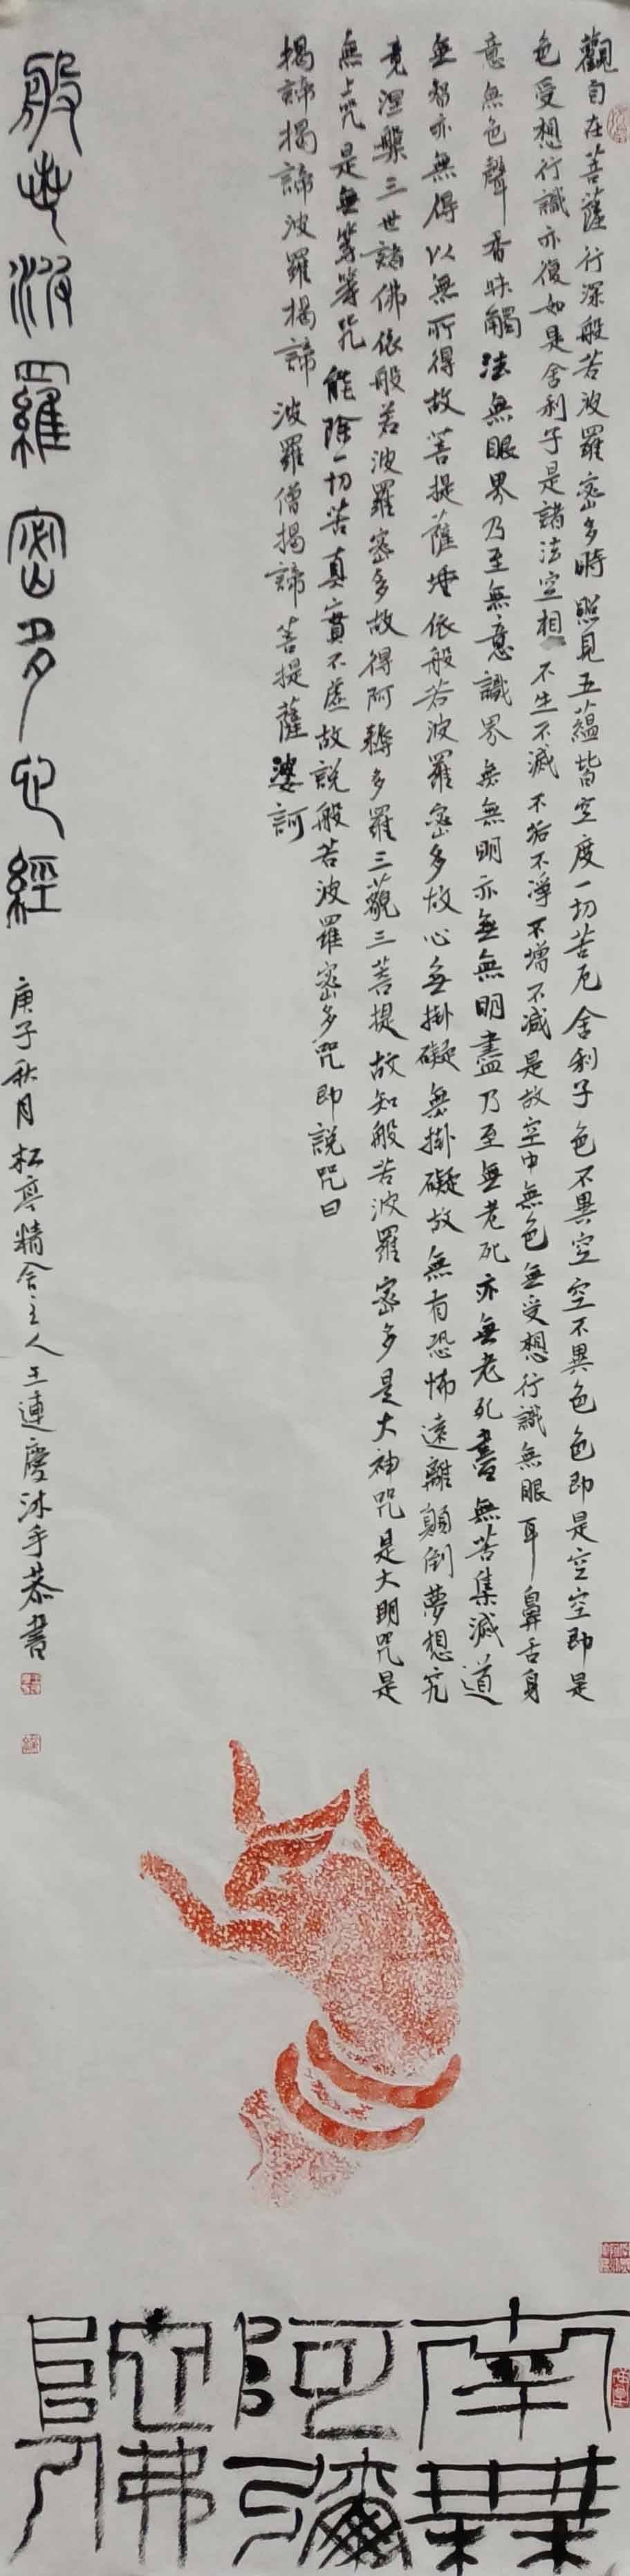 觀自在菩薩行深般若波羅密多時照見五蘊皆空度一切苦厄舍利子色不異空空不異色色即是空空即是
色受想行識亦復如是舍利子是諸法空相不生不滅不垢不淨不增不減是故空中無色無受想行識無眼耳鼻舌身
意無色聲香味觸法無眼界乃至無意識界無無明亦無無明盡乃至無老死亦無老死盡無苦集滅道
無智亦無得以無所得故菩提薩埵依般若波羅密多故心無掛礙無掛礙故無有恐怖遠離顛倒夢想究
竟涅槃三世諸佛依般若波羅密多故得阿耨多羅三藐三菩提故知般若波羅密多是大神咒是大明咒是
無上咒是無等等咒能除一切苦真實不虛故說般若波羅密多咒即說咒曰
揭諦揭諦波羅揭諦波羅僧揭諦菩提薩婆訶
般若波羅密多心經
庚子秋月松亭精舍主人王連慶沐手恭書
南無
阿彌
陀佛